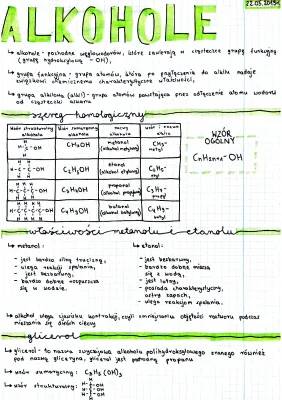 22.05.2019r
ALKOHOLE
↳ alkohole - pochodne węglowodorów, które zawierają w cząsteczce grupę funkcyjną
(grupę hydroksylową - OH),
↳ grupa funkcyjna - grupa atomów, która po przyłączeniu do alkilu nadaje
związkowi chemicznemu charakterystyczne właściwości,
↳ grupa alkilowa (alkil) - grupa atomów powstająca przez odłączenie atomu wodoru
od cząsteczki alkanu
szereg homologiczny
wzór strukturalny alkoholu
wzór sumaryczny
nazwy alkoholu
wzór i nazwa alkilu
CH3OH
metanol (alkohol metylowy)
CH3- metyl
C2H5OH
etanol (alkohol etylowy)
C2H5- etyl
C3H7OH
propanol (alkohol propylowy)
C3H7- propyl
C4H9OH
butanol (alkohol butylowy)
C4H9- butyl
WZÓR
OGÓLNY
CnH2n+1-OH
właściwości metanolu i etanolu
↳ metanol:
- jest bardzo silną trucizną,
- ulega reakcji spalania,
- jest bezbarwny,
- bardzo dobrze rozpuszcza
się w wodzie.
↳ etanol:
- jest bezbarwny,
- bardzo dobrze miesza
się z wodą,
- jest lotny,
- posiada charakterystyczny,
ostry zapach,
- ulega reakcjom spalania.
↳ alkohol ulega zjawisku kontrakcji, czyli zmniejszaniu objętości roztworu podczas
mieszania się dwóch cieczy
glicerol
↳ glicerol - to nazwa zwyczajowa alkoholu polihydroksylowego znanego również
pod nazwą gliceryna, glicerol jest pochodną propanu
↳ wzór sumaryczny: C3H5(OH)3
↳ wzór strukturalny: